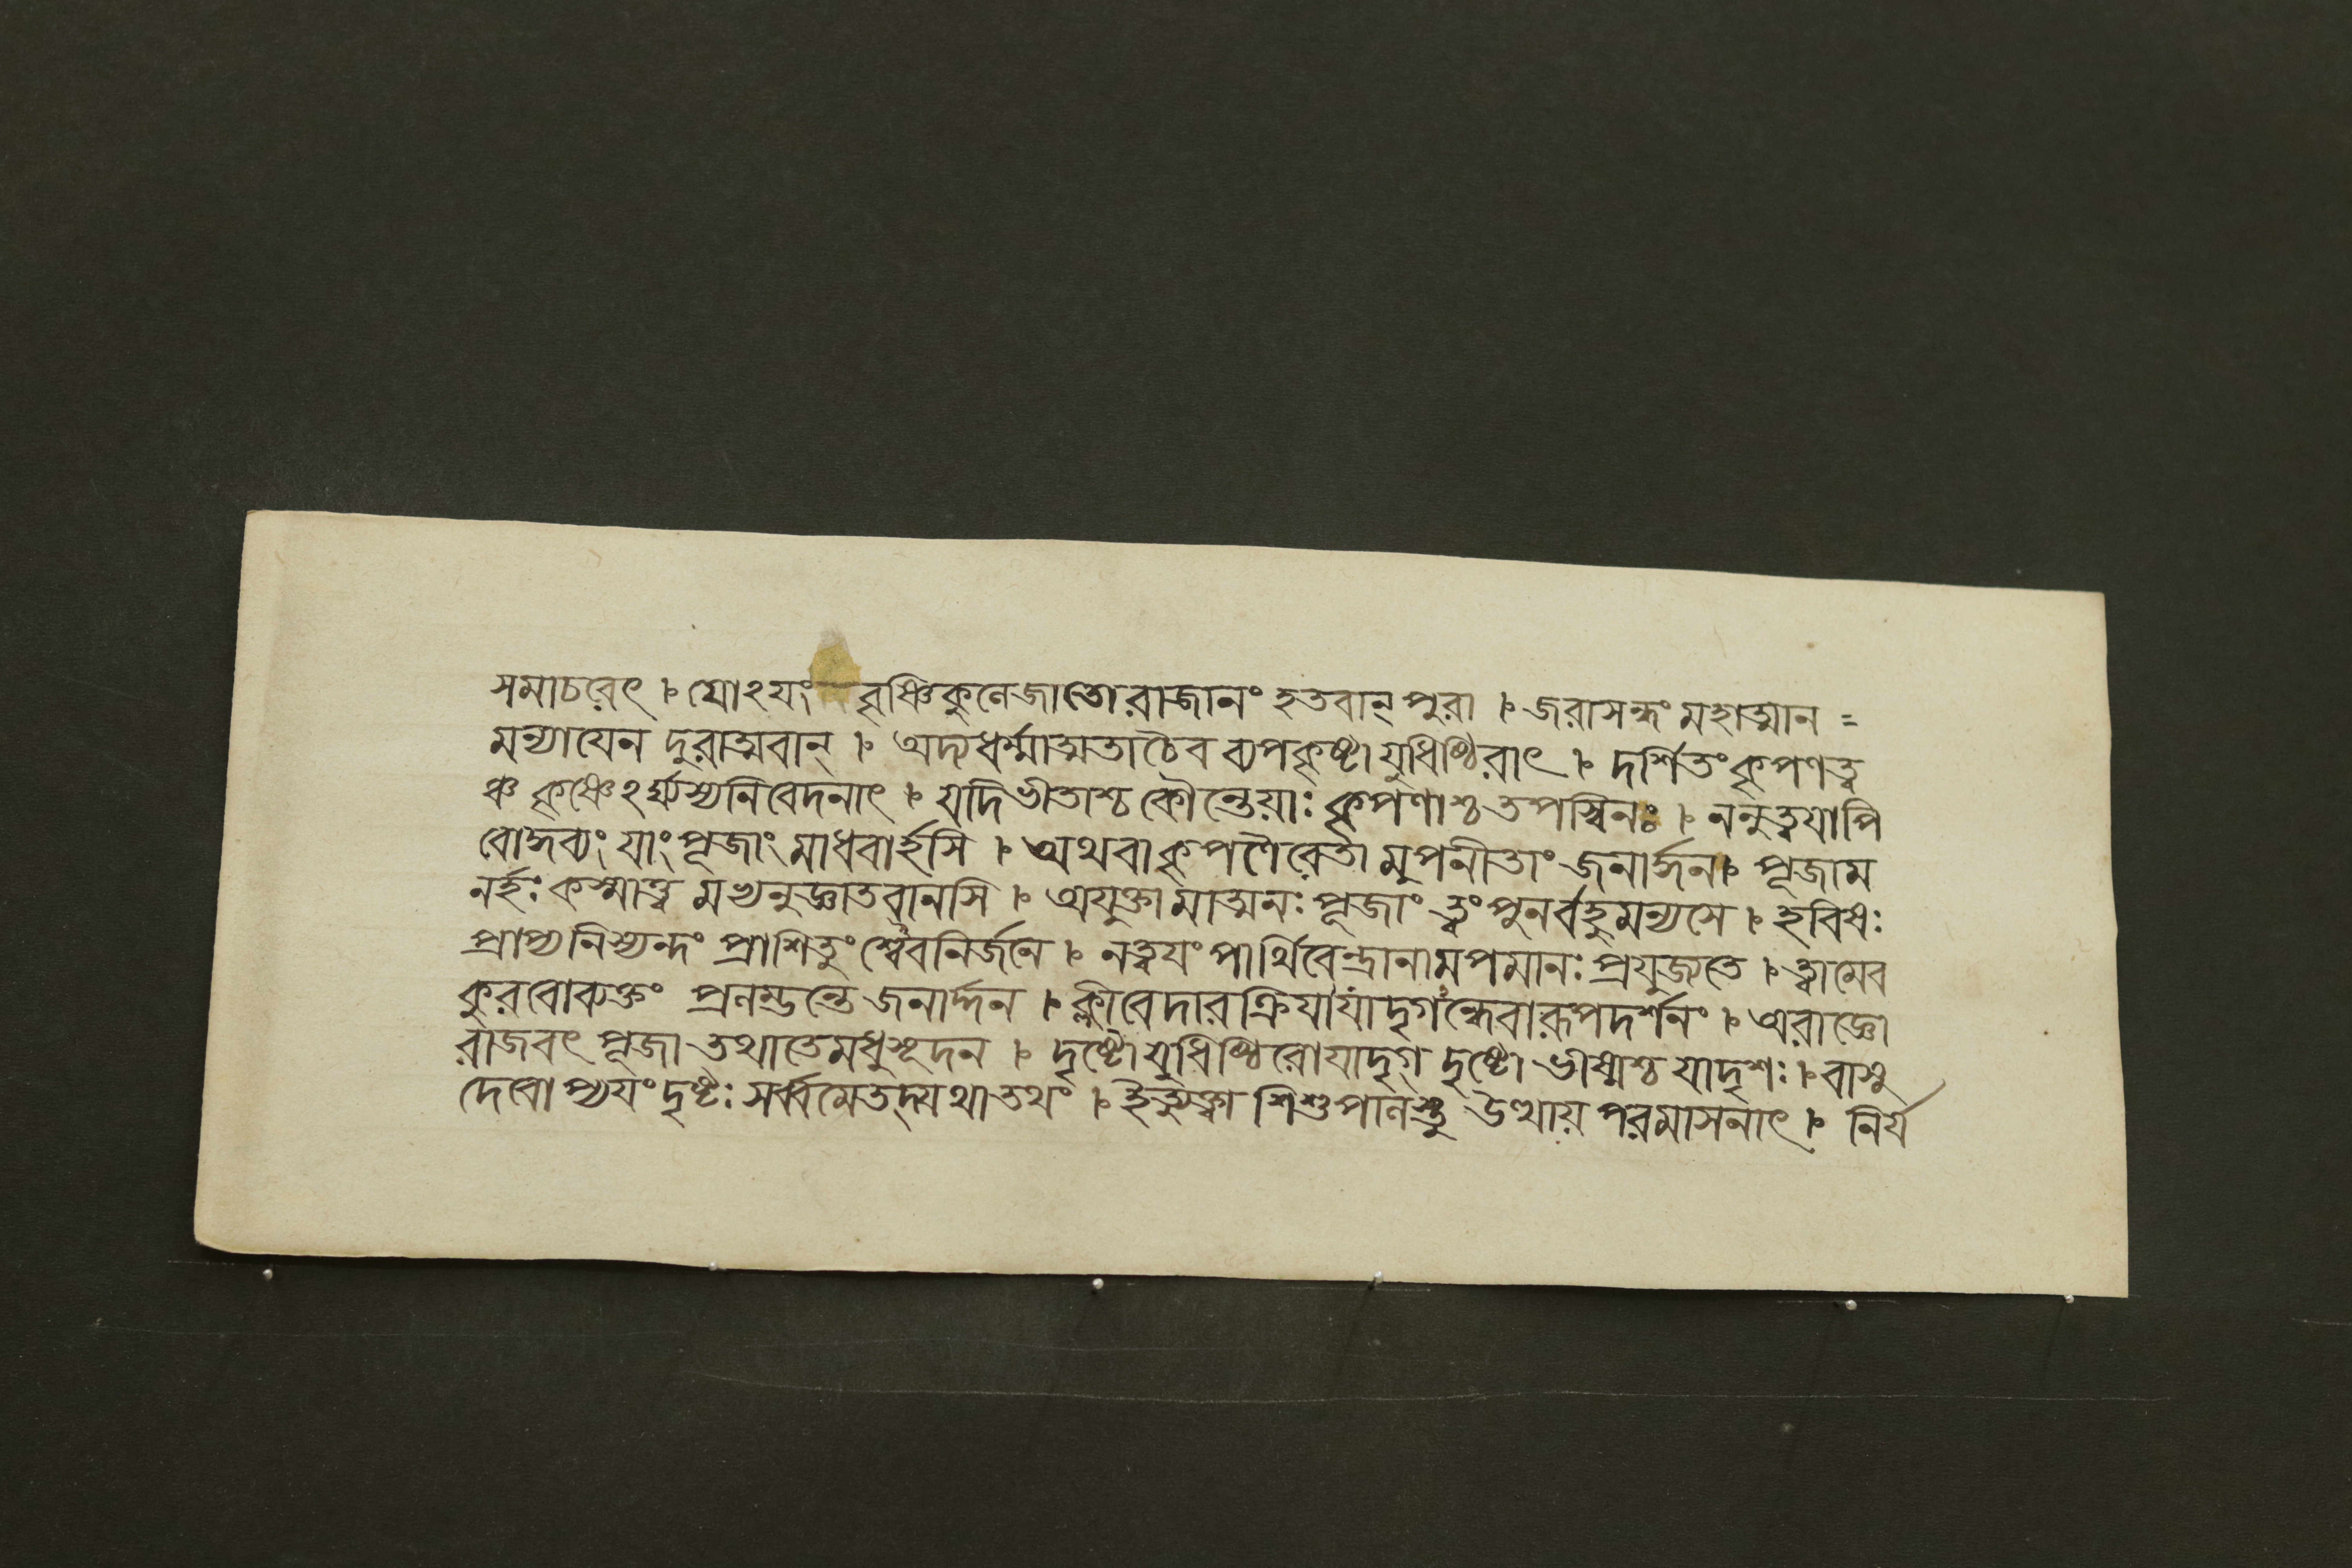 সমাচরেৎ । যোঽয়ং বৃষ্ণিকুলে জাতো রাজানং হতবান্ পুরা । জরাসন্ধং মহাত্মান =
মন্যায়েন দুরাত্মবান্ । অদ্য ধর্ম্মাত্মতা চৈব ব্যপকৃষ্টা যুধিষ্ঠিরাৎ । দর্শিতং কৃপণত্ব
ঞ্চ কৃষ্ণেঽর্ঘ্যস্য নিবেদনাৎ । যদি ভীতাশ্চ কৌন্তেয়াঃ কৃপণাশ্চ তপস্বিনঃ । ননু ত্বয়াপি
বোদ্ধব্যং যাং পূজাং মাধবার্হসি । অথবা কৃপণৈরেতা মুপনীতাং জনার্দ্দন । পূজাম
নর্হঃ কস্মাত্ত্ব মভ্যনুজ্ঞাতবানসি । অযুক্তামাত্মনঃ পূজাং ত্বং পুনর্বহুমন্যসে । হবিষঃ
প্রাপ্য নিস্যন্দং প্রাশিতুং শ্বেব নির্জনে । নত্বয়ং পার্থিবেন্দ্রানামপমানঃ প্রযুজ্যতে । ত্বামেব
কুরবো ব্যক্তং প্রলম্ভন্তে জনার্দ্দন । ক্লীবে দারক্রিয়া যাদৃগন্ধে বা রূপদর্শনং । অরাজ্ঞো
রাজবৎ পূজা তথা তে মধুসূদন । দৃষ্টো যুধিষ্ঠিরো যাদৃগ্ দৃষ্টো ভীষ্মশ্চ যাদৃশঃ । বাসু
দেবোপ্যয়ং দৃষ্টঃ সর্ব্বমেতদ্যথাতথং । ইত্যুক্ত্বা শিশুপালস্তু উত্থায় পরমাসনাৎ । নির্য